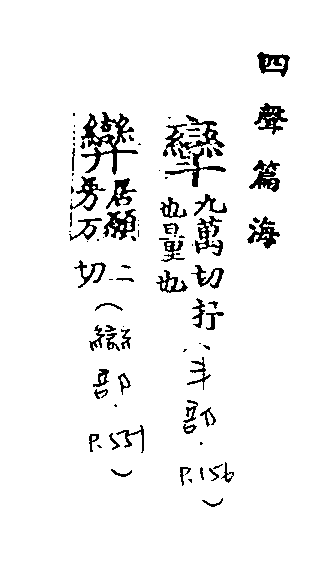 四聲篇海
九萬切抒
也量也
(部.P.156)
居願
芳万
二切(䜌部.P.551)